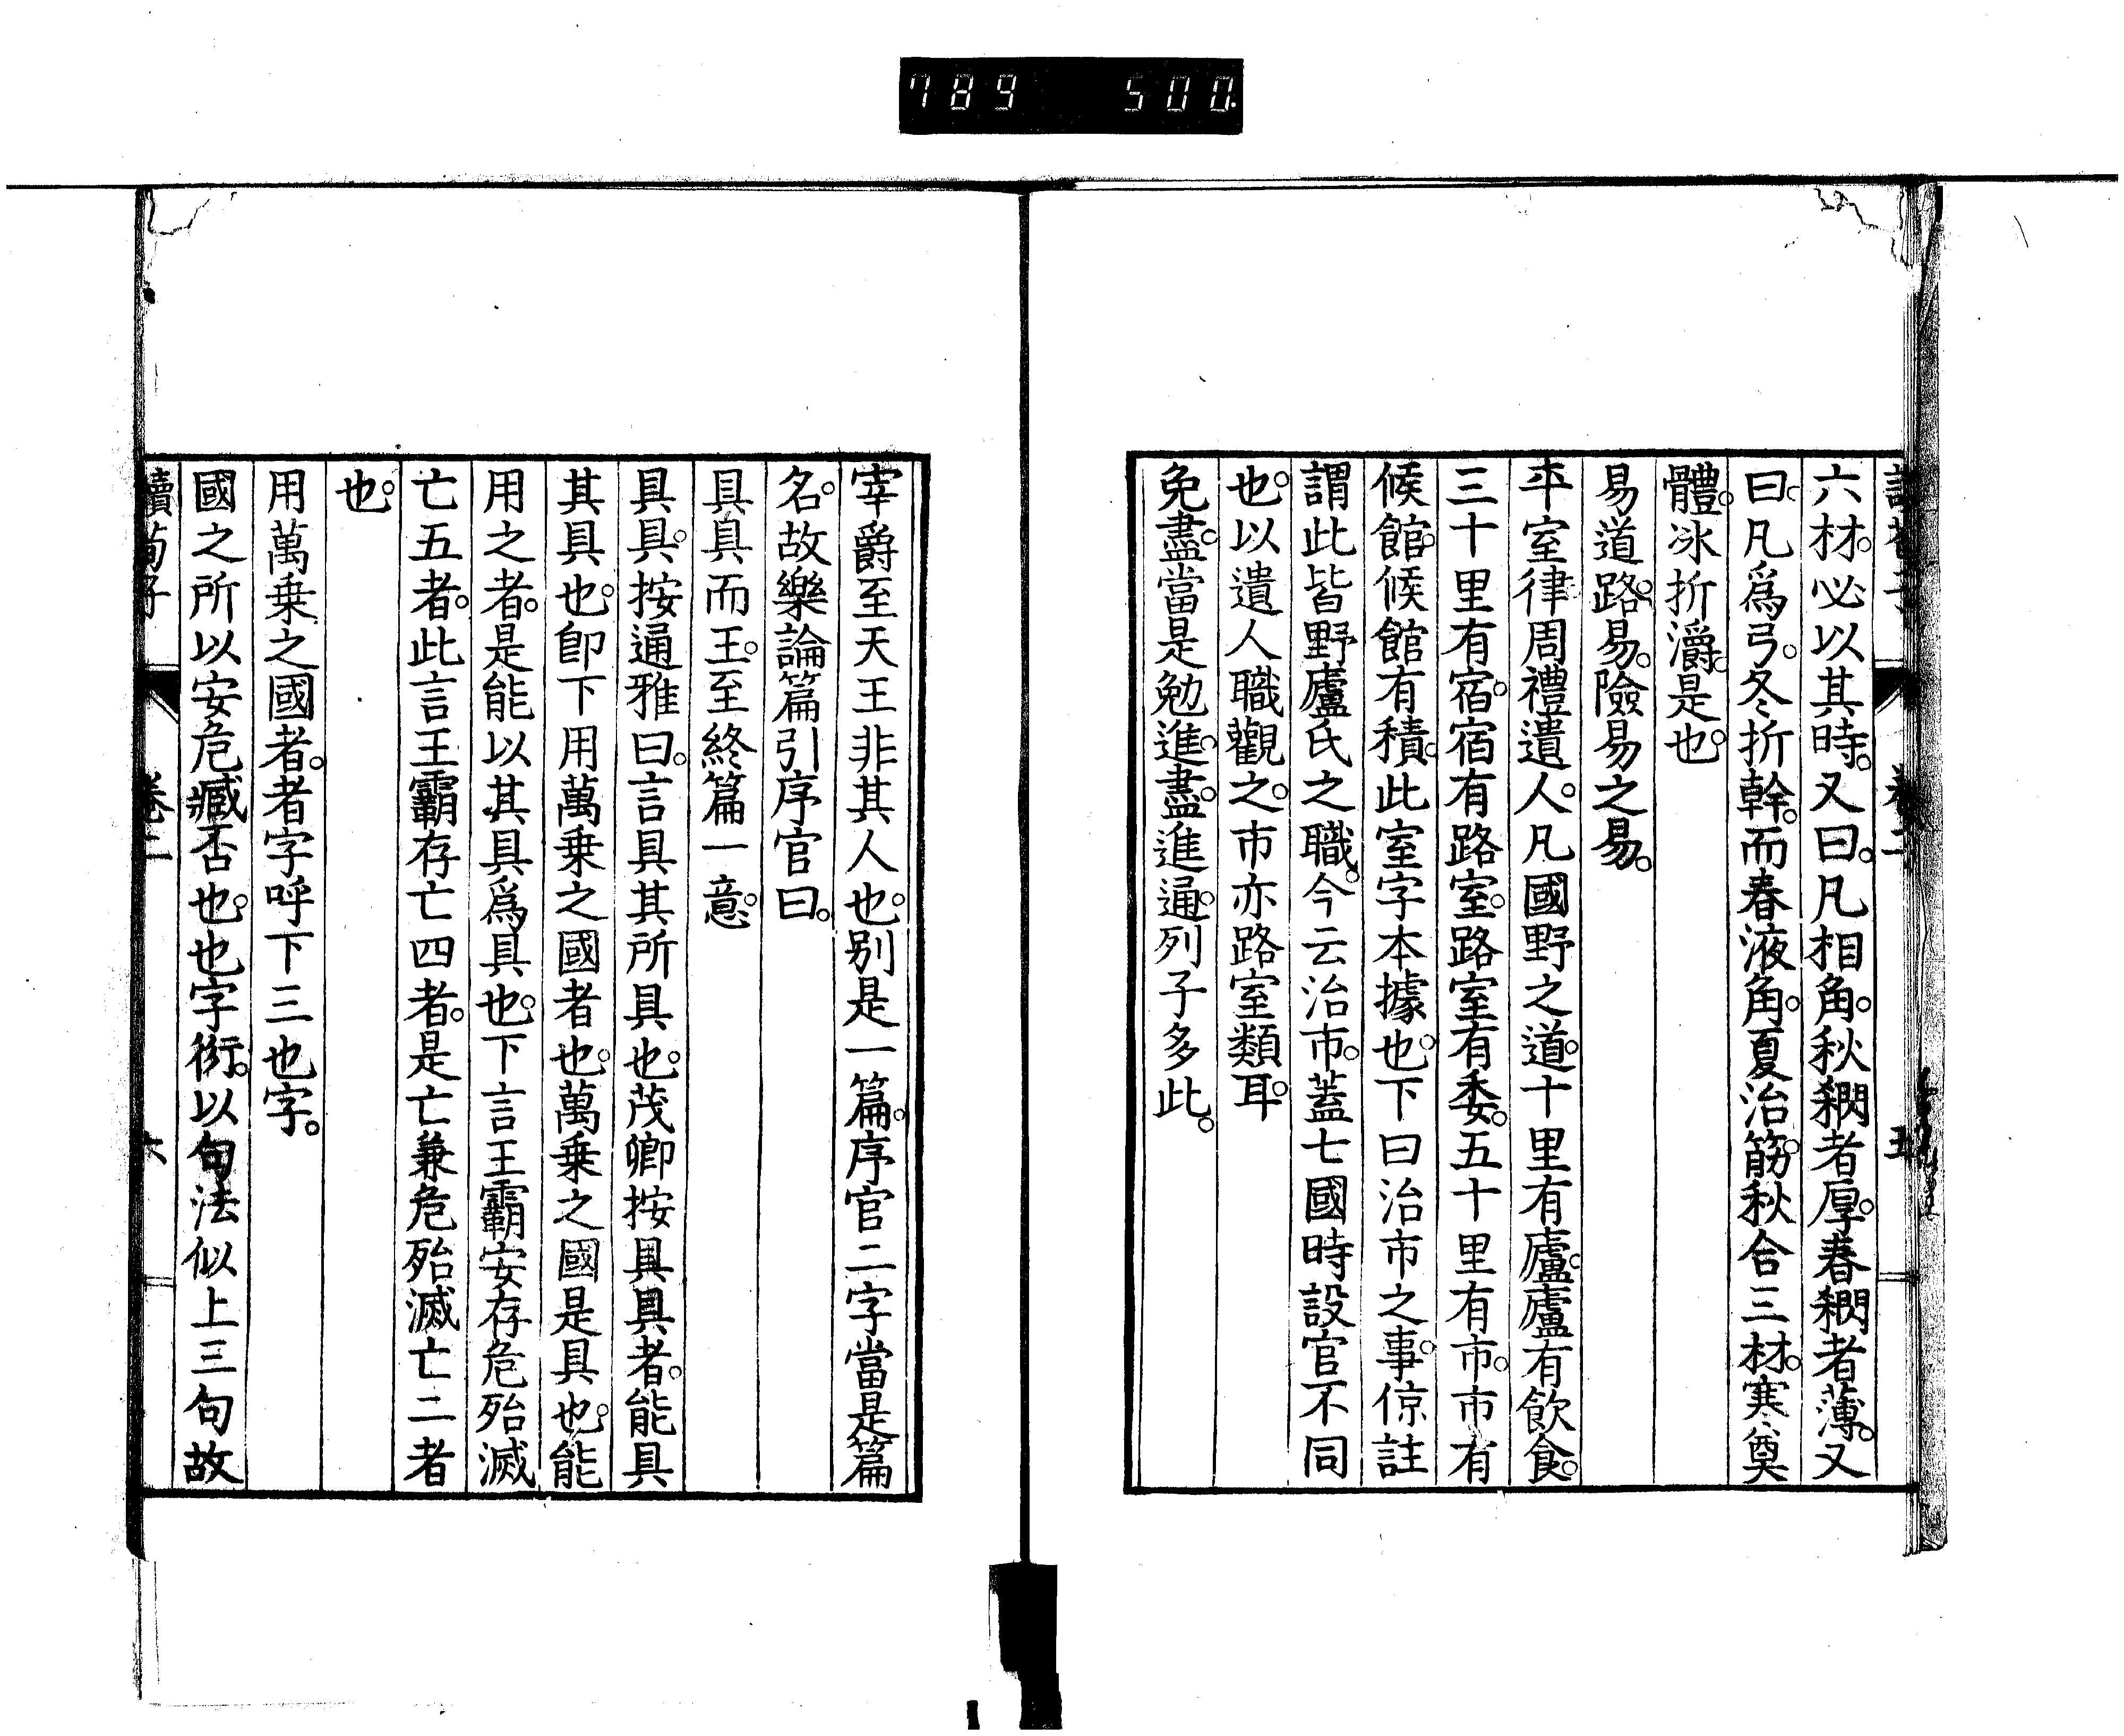 789 500.
六材。必以其時。又曰。凡相角。秋閷者厚。春閷者薄。又
曰。凡爲弓。冬折幹。而春液角。夏治筋。秋合三材。寒奠
體。冰折灂。是也。
易道路。易。險易之易。
平室律周禮遺人。凡國野之道。十里有廬。廬有飲食。
三十里有宿。宿有路室。路室有委。五十里有市。市有
候館。候館有積。此室字本據也。下曰治市之事。倞註
謂此皆野廬氏之職。今云治市。蓋七國時設官不同
也。以遺人職觀之。市亦路室類耳。
免盡。當是勉進。盡進通。列子多此。
宰爵至天王非其人也。別是一篇。序官二字當是篇
名。故樂論篇引序官曰。
具具而王。至終篇一意。
具具。按通雅曰。言具其所具也。茂卿按具具者。能具
其具也。卽下用萬乗之國者也。萬乗之國是具也。能
用之者。是能以其具爲具也。下言王霸安存危殆滅
亡五者。此言王霸存亡四者。是亡兼危殆滅亡二者
也。
用萬乗之國者。者字呼下三也字。
國之所以安危臧否也。也字衍。以句法似上三句故
讀荀子 卷二 六